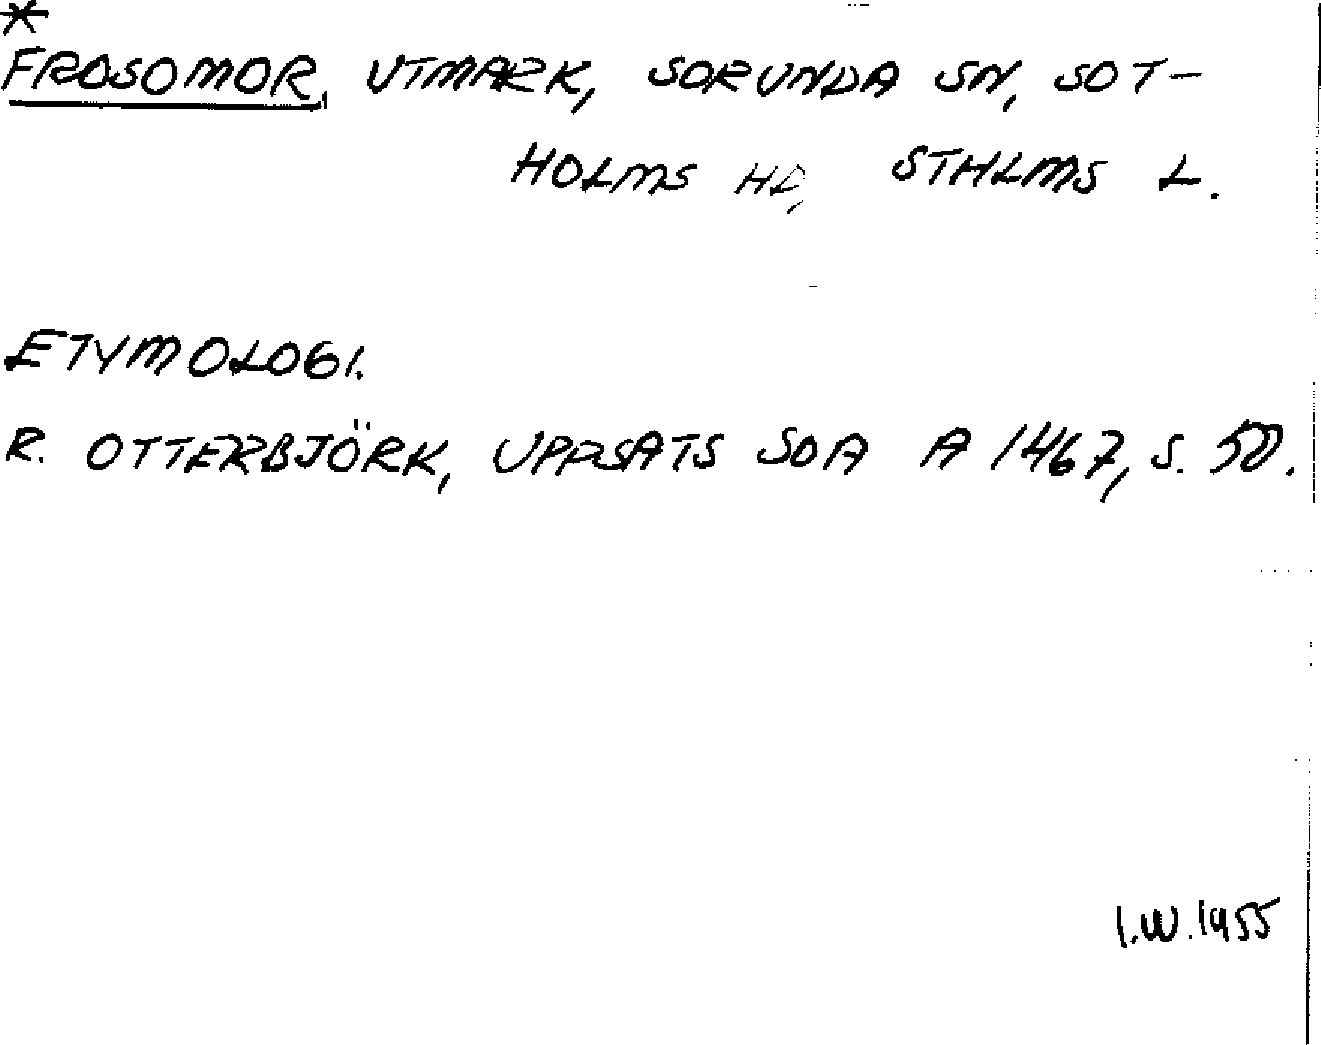 *
FROSOMOR, UTMARK, SORUNDA SN, SOT-
HOLMS HD, STHLMS L.
ETYMOLOGI.
R. OTTERBJÖRK, UPPSATS SOA A 1467, S. 50.
I.W.1955